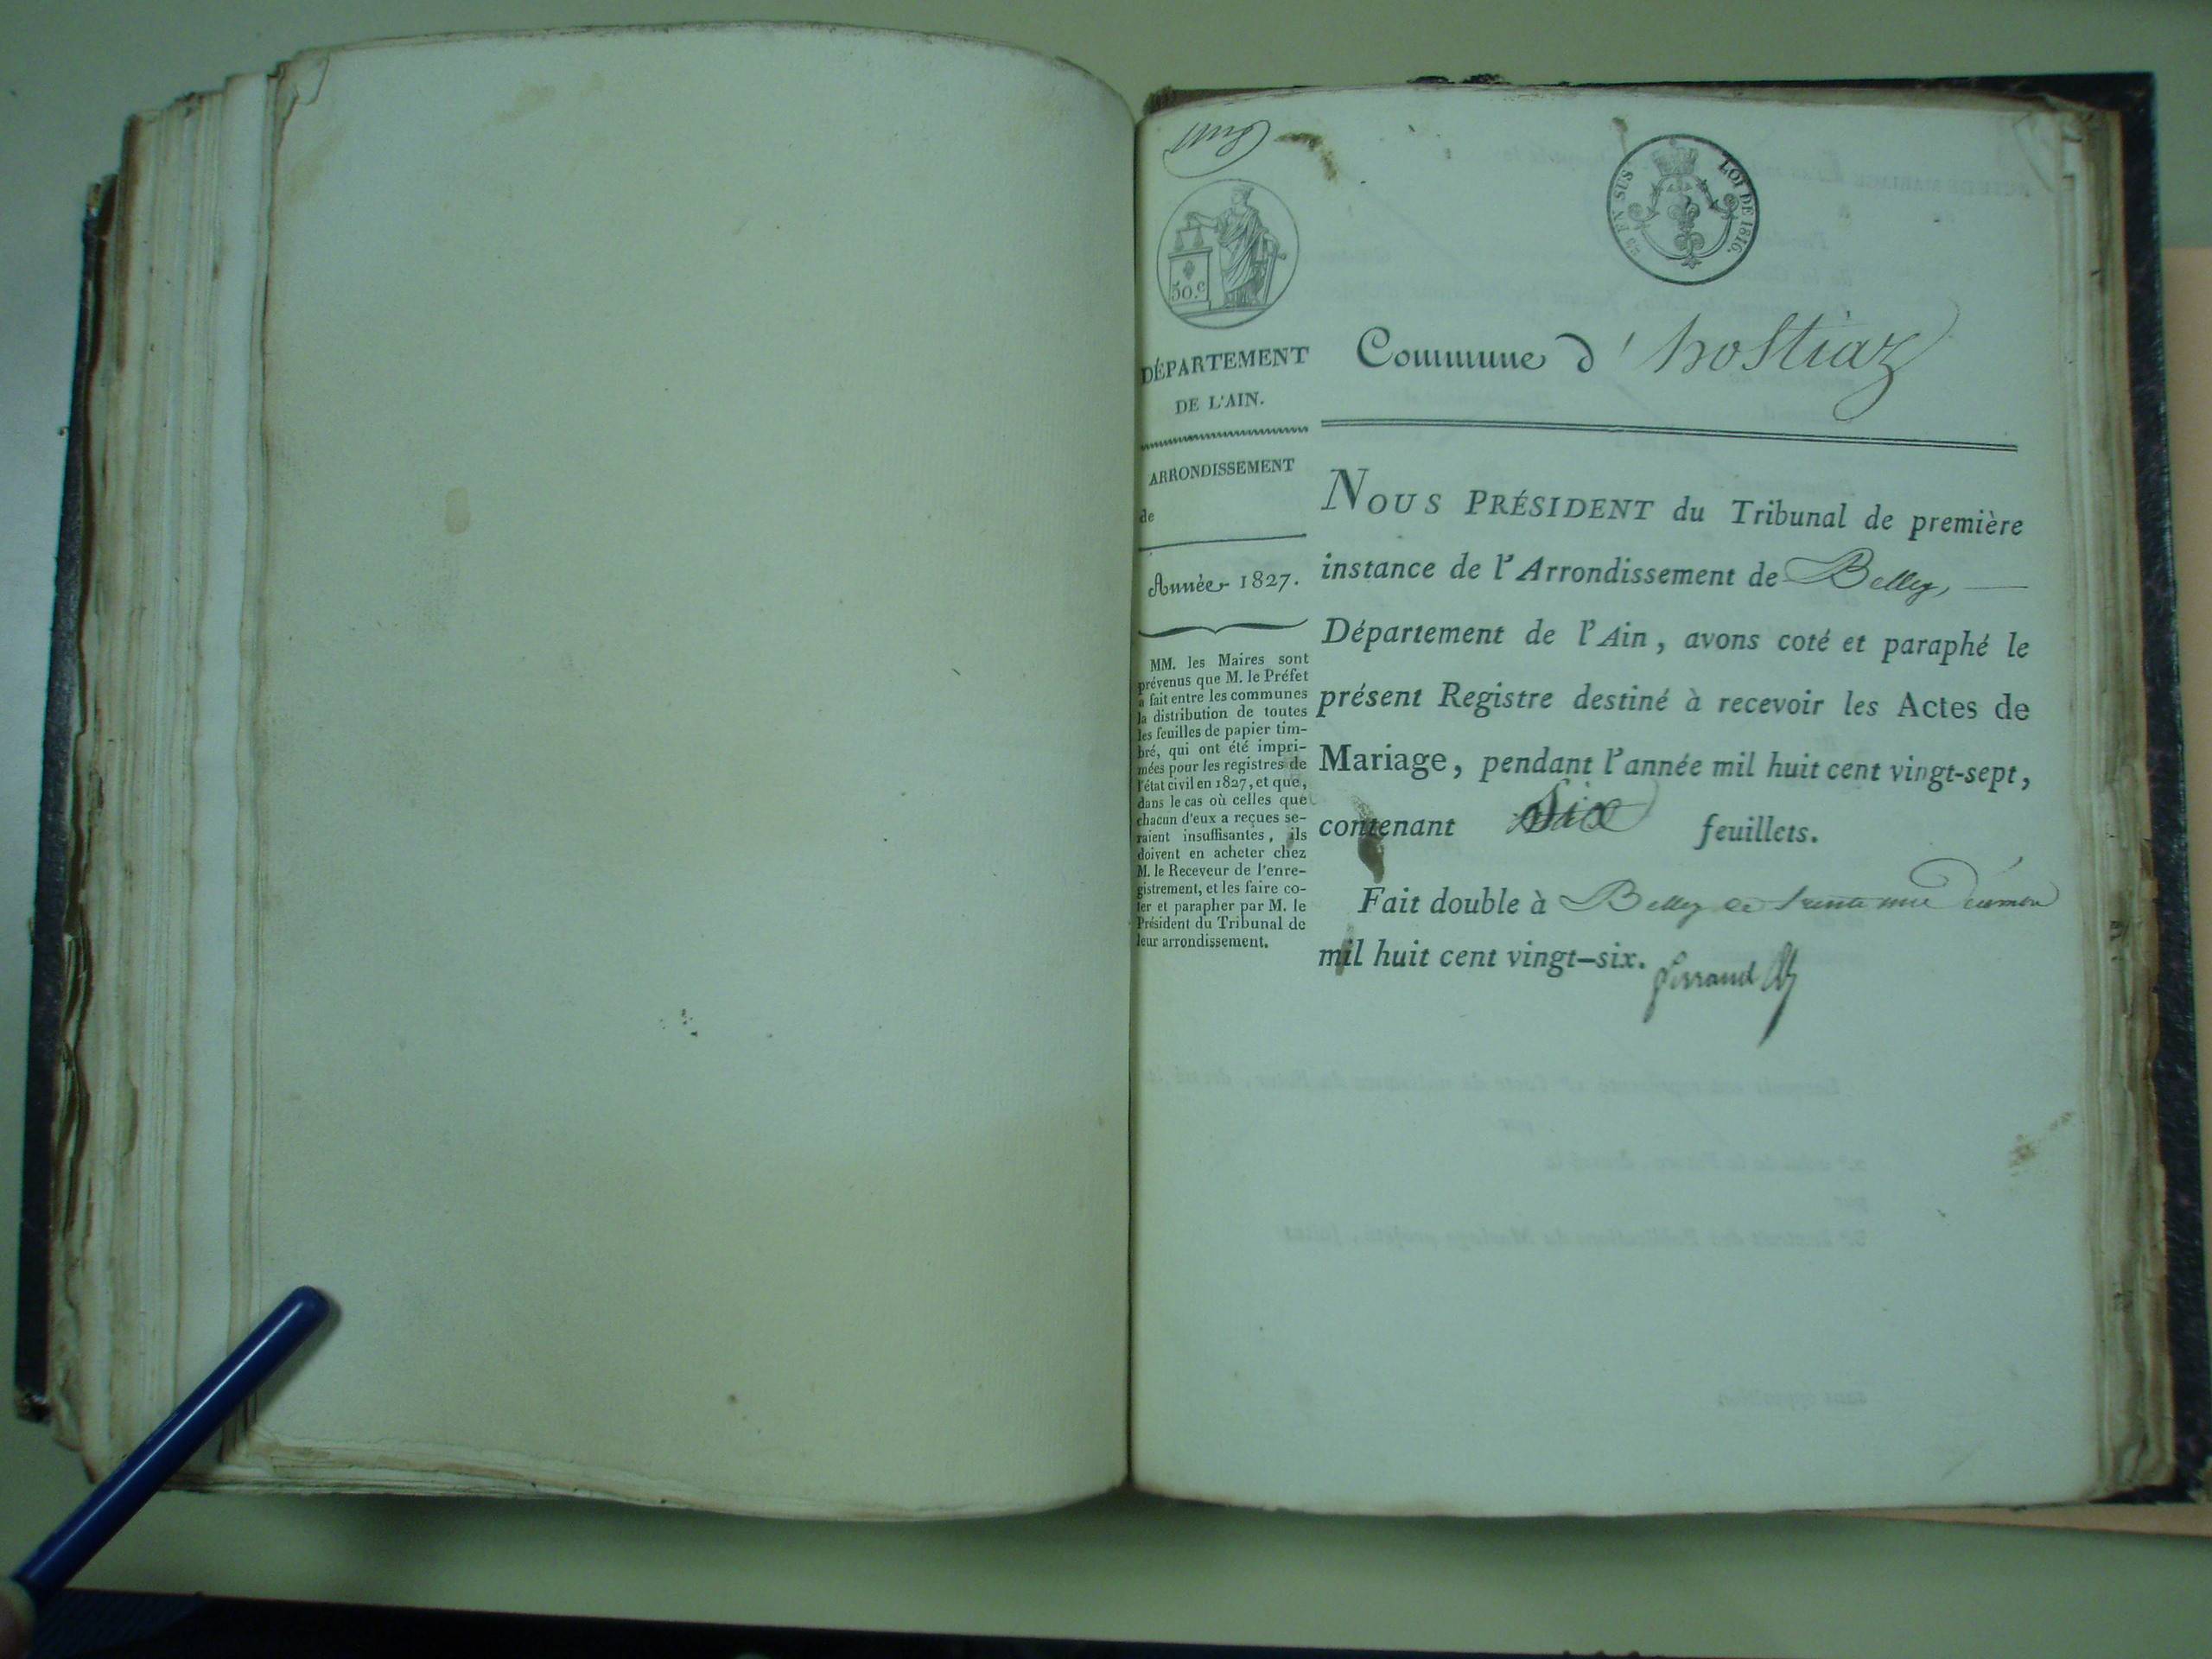 50.c
EN SUS
LOI DE 1816.
DÉPARTEMENT
DE L'AIN.
ARRONDISSEMENT
de
Année 1827.
MM. les Maires sont
prévenus que M. le Préfet
a fait entre les communes
la distribution de toutes
les feuilles de papier tim-
bré, qui ont été impri-
mées pour les registres de
l'état civil en 1827, et que,
dans le cas où celles que
chacun d'eux a reçues se-
raient insuffisantes, ils
doivent en acheter chez
M. le Receveur de l'enre-
gistrement, et les faire co-
ter et parapher par M. le
Président du Tribunal de
leur arrondissement.
Commune d'hostiaz
NOUS PRÉSIDENT du Tribunal de première
instance de l'Arrondissement de Belley,
Département de l'Ain, avons coté et paraphé le
présent Registre destiné à recevoir les Actes de
Mariage, pendant l'année mil huit cent vingt-sept,
contenant Six feuillets.
Fait double à Belley le trente une Décembre
mil huit cent vingt-six.